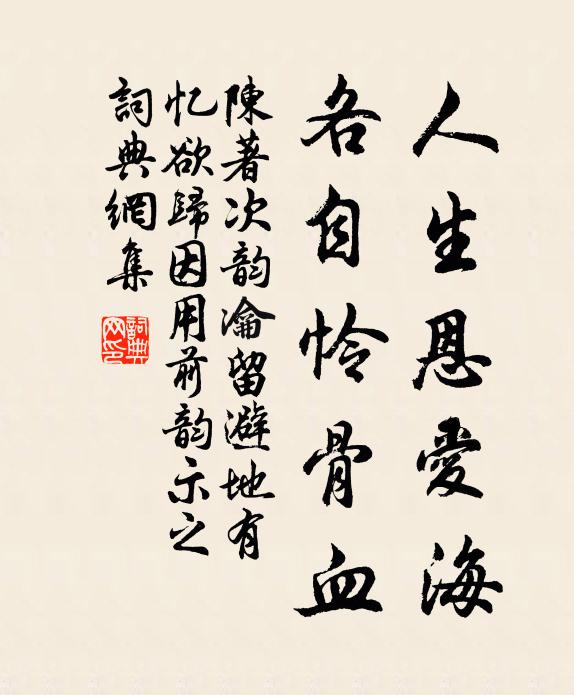 人生恩愛海
各自怜骨血
陳著次韵瀹留避地有
忆欲歸因用前韵示之
詞典網集
詞典网印